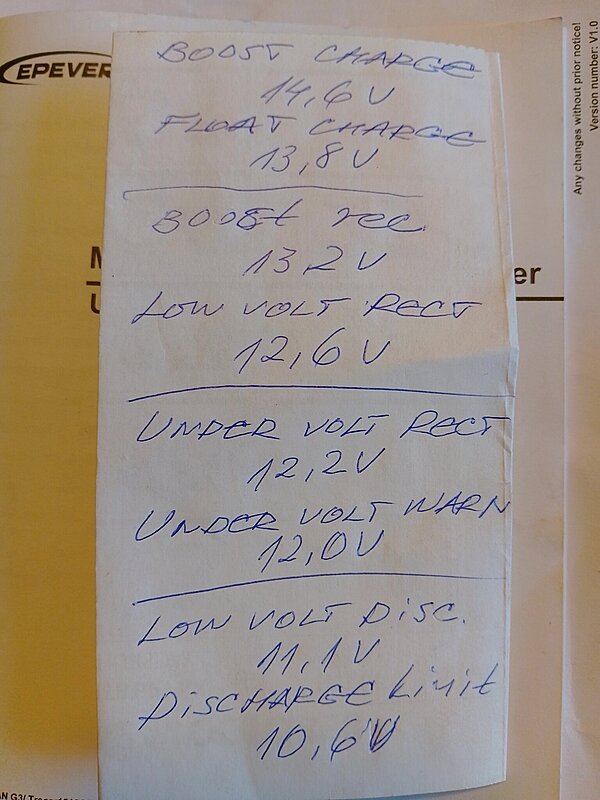 EPEVER
BOOST CHARGE
14,6 V
FLOAT CHARGE
13,8 V
BOOSt rec.
13,2 V
LOW VOLT RECT
12,6 V
UNDER VOLT RECT
12,2V
UNDER VOLT WARN
12,0V
LOW VOLT DiSC.
11,1V
DiSCHARGE Limit
10,6V
er
Any changes without prior notice!
Version number: V1.0